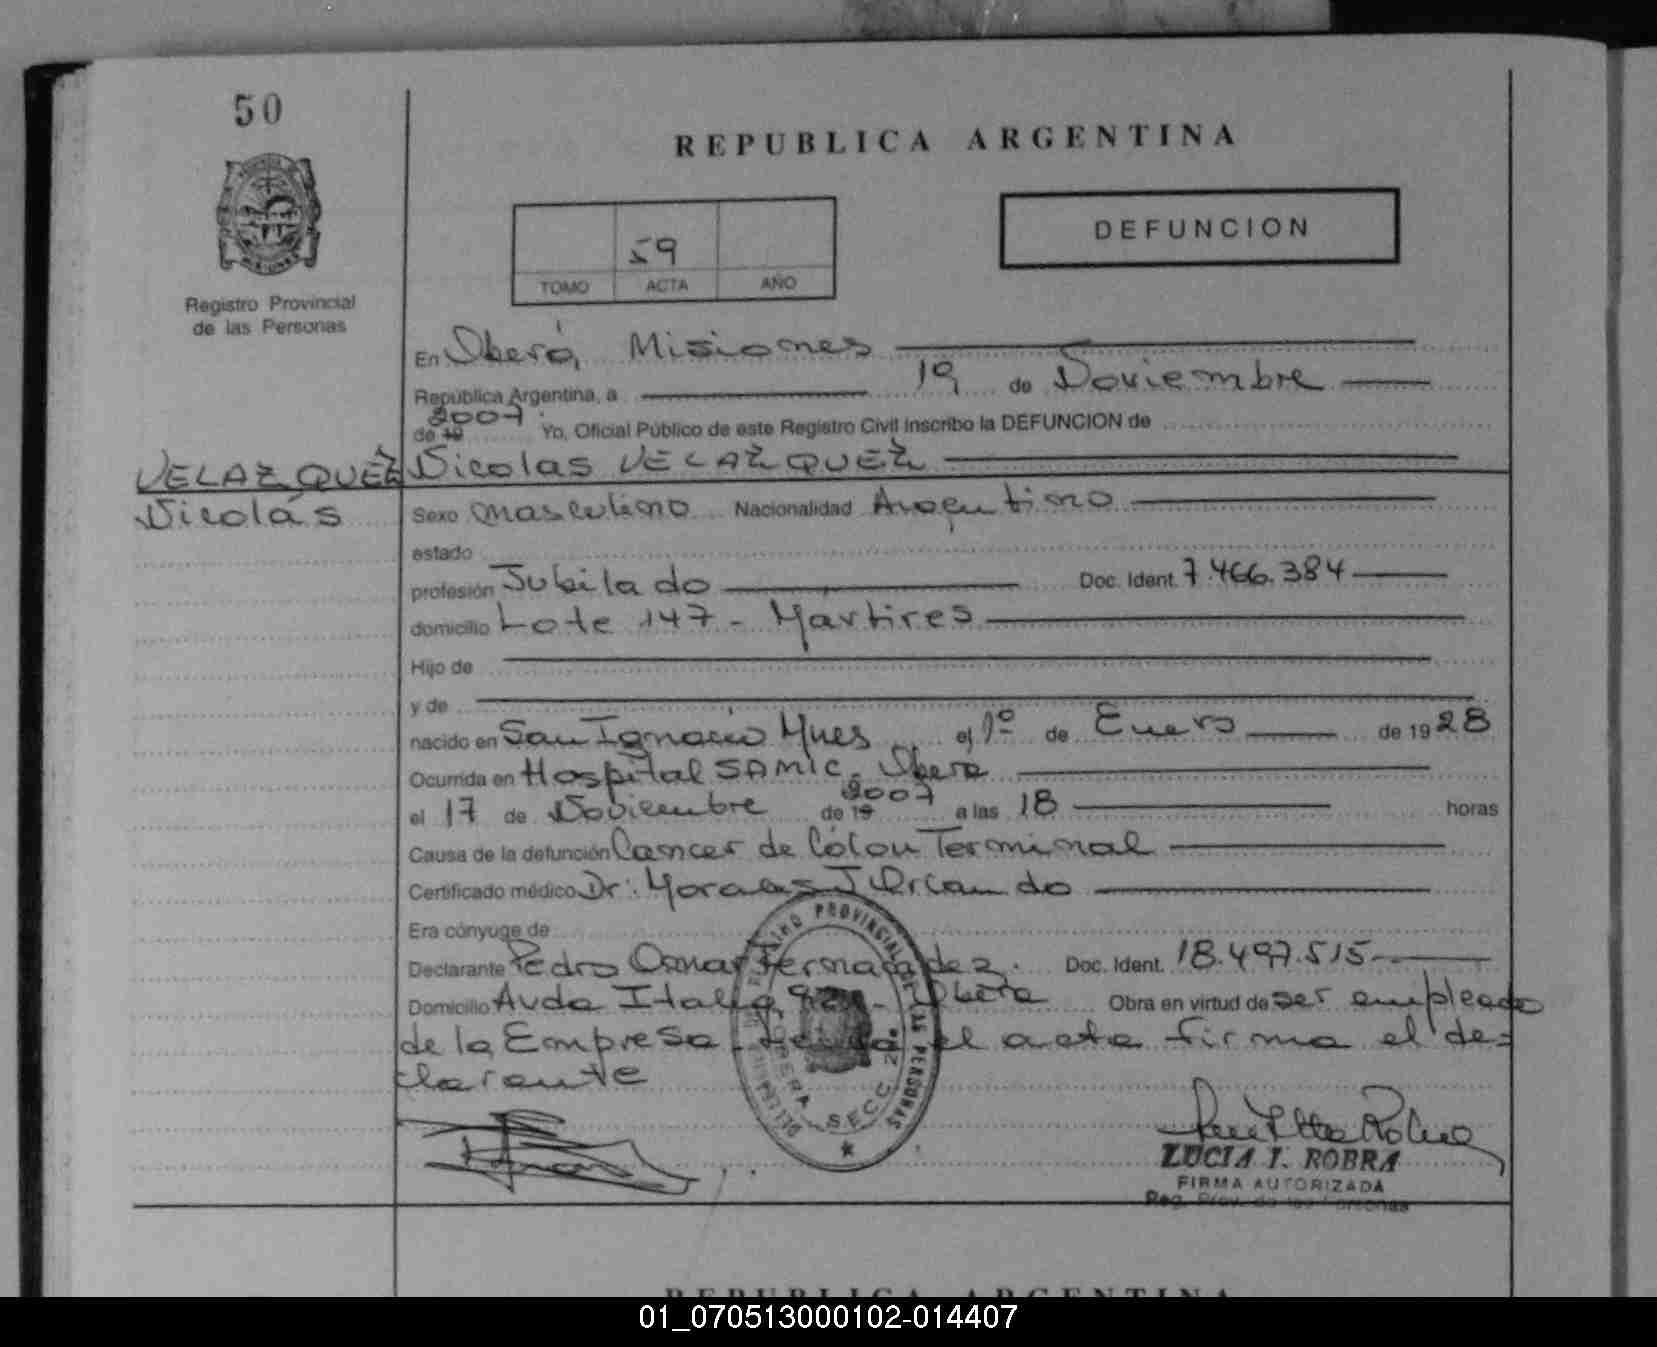 50
REPUBLICA ARGENTINA
DEFUNCION
59
TOMO ACTA AÑO
Registro Provincial
de las Personas
En Oberá, Misiones
República Argentina, a 19 de Noviembre
de 19 2007. Yo, Oficial Público de este Registro Civil inscribo la DEFUNCION de
VELAZQUEZ Nicolas VELAZQUEZ
Nicolás Sexo masculino Nacionalidad Argentino
estado
profesión Jubilado Doc. Ident. 7.466.384
domicilio Lote 147 - Martires
Hijo de
y de
nacido en San Ignacio Mnes el 1º de Enero de 1928
Ocurrida en Hospital SAMIC - Obera
el 17 de Noviembre de 19 2007 a las 18 horas
Causa de la defunción Cancer de Cólon Terminal
Certificado médico Dr. Morales J Orlando
Era cónyuge de
Declarante Pedro Osmar Fernandez. Doc. Ident. 18.497.515
Domicilio Avda Italia - Obera Obra en virtud de ser empleado
de la Empresa el acta firma el de=
clarante
REGISTRO PROVINCIAL DE LAS PERSONAS
OBERA SECC 2ª
LUCIA I. ROBRA
FIRMA AUTORIZADA
Reg. Prov. de las Personas
REPUBLICA ARGENTINA
01_070513000102-014407